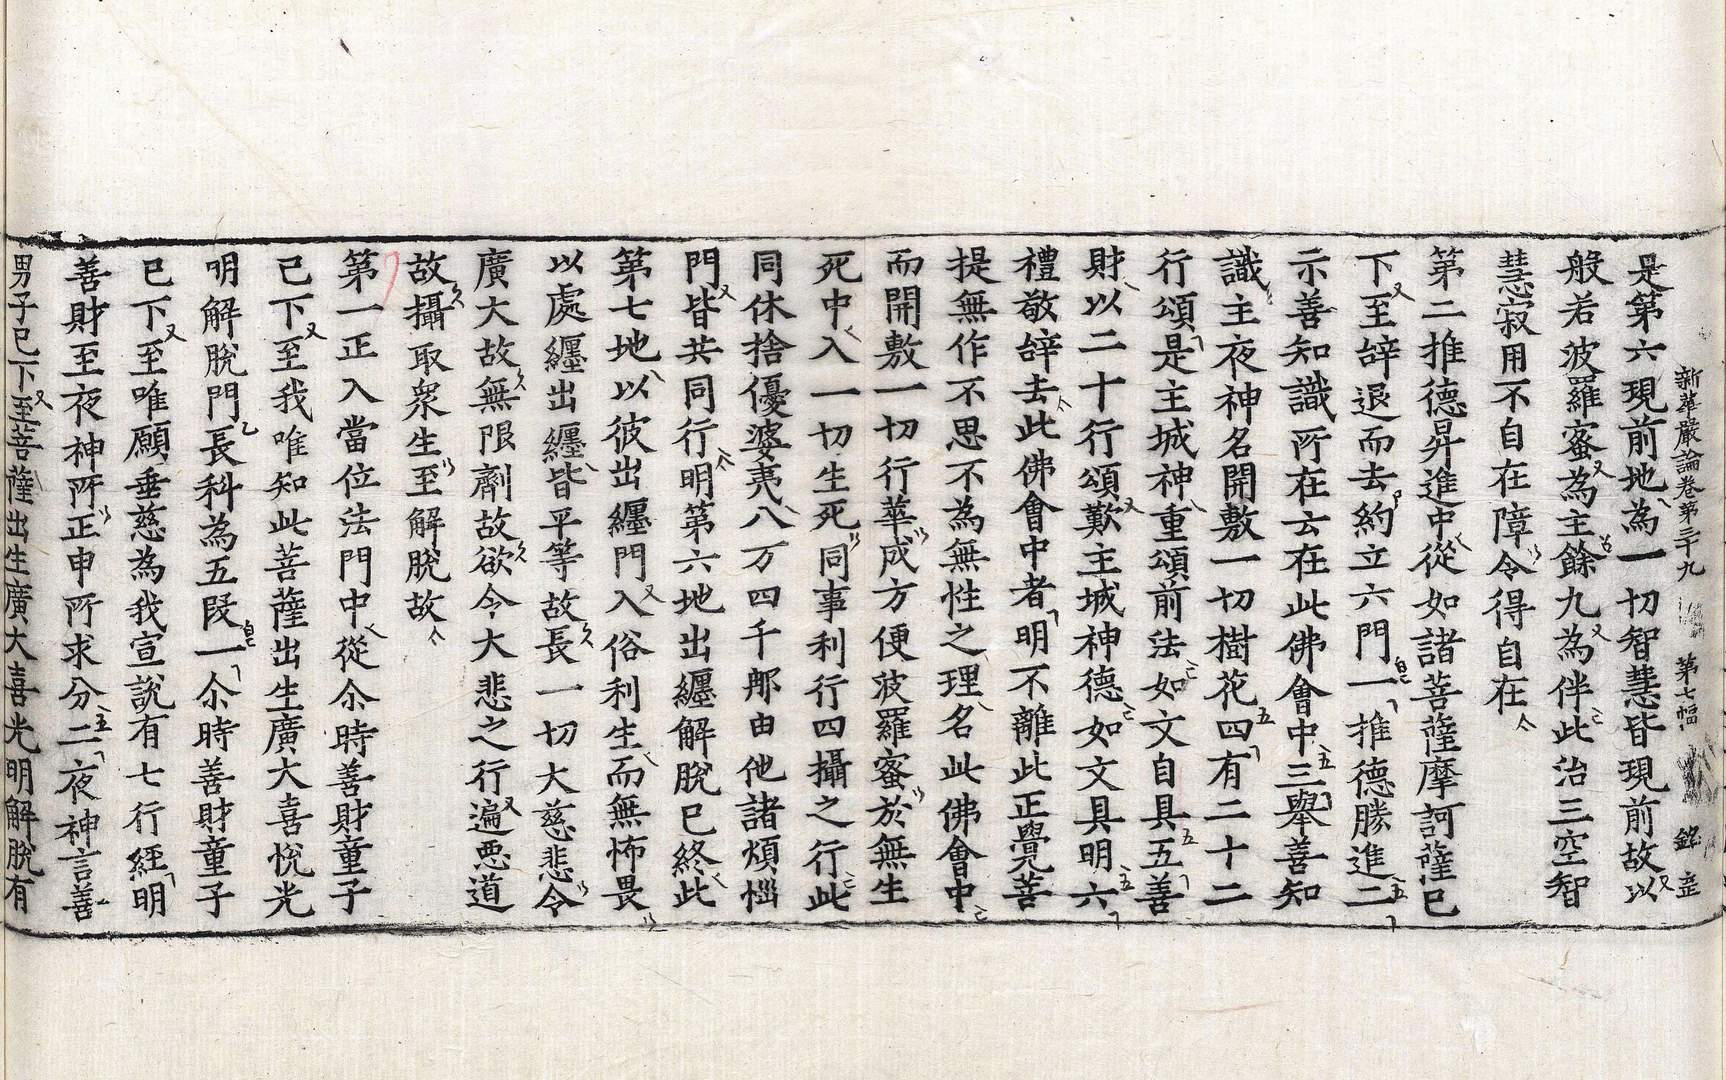 新華嚴論卷第三十九 第七幅
是第六現前地為一切智慧皆現前故以
般若波羅蜜為主餘九為伴此治三空智
慧寂用不自在障令得自在
第二推德昇進中從如諸菩薩摩訶薩已
下至辝退而去約立六門一推德勝進二
示善知識所在云在此佛會中三舉善知
識主夜神名開敷一切樹花四有二十二
行頌是主城神重頌前法如文自具五善
財以二十行頌歎主城神德如文具明六
禮敬辝去此佛會中者明不離此正覺菩
提無作不思不為無性之理名此佛會中
而開敷一切行華成方便波羅蜜於無生
死中入一切生死同事利行四攝之行此
同休捨優婆夷八万四千郍由他諸煩惱
門皆共同行明第六地出纏解脫已終此
第七地以彼出纏門入俗利生而無怖畏
以處纏出纏皆平等故長一切大慈悲令
廣大故無限劑故欲令大悲之行遍惡道
故攝取衆生至解脫故
第一正入當位法門中從尒時善財童子
已下至我唯知此菩薩出生廣大喜悅光
明解脫門長科為五段一尒時善財童子
已下至唯願垂慈為我宣說有七行經明
善財至夜神所正申所求分二夜神言善
男子已下至菩薩出生廣大喜光明解脫有